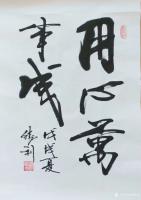 用心萬
事成
戊戌夏